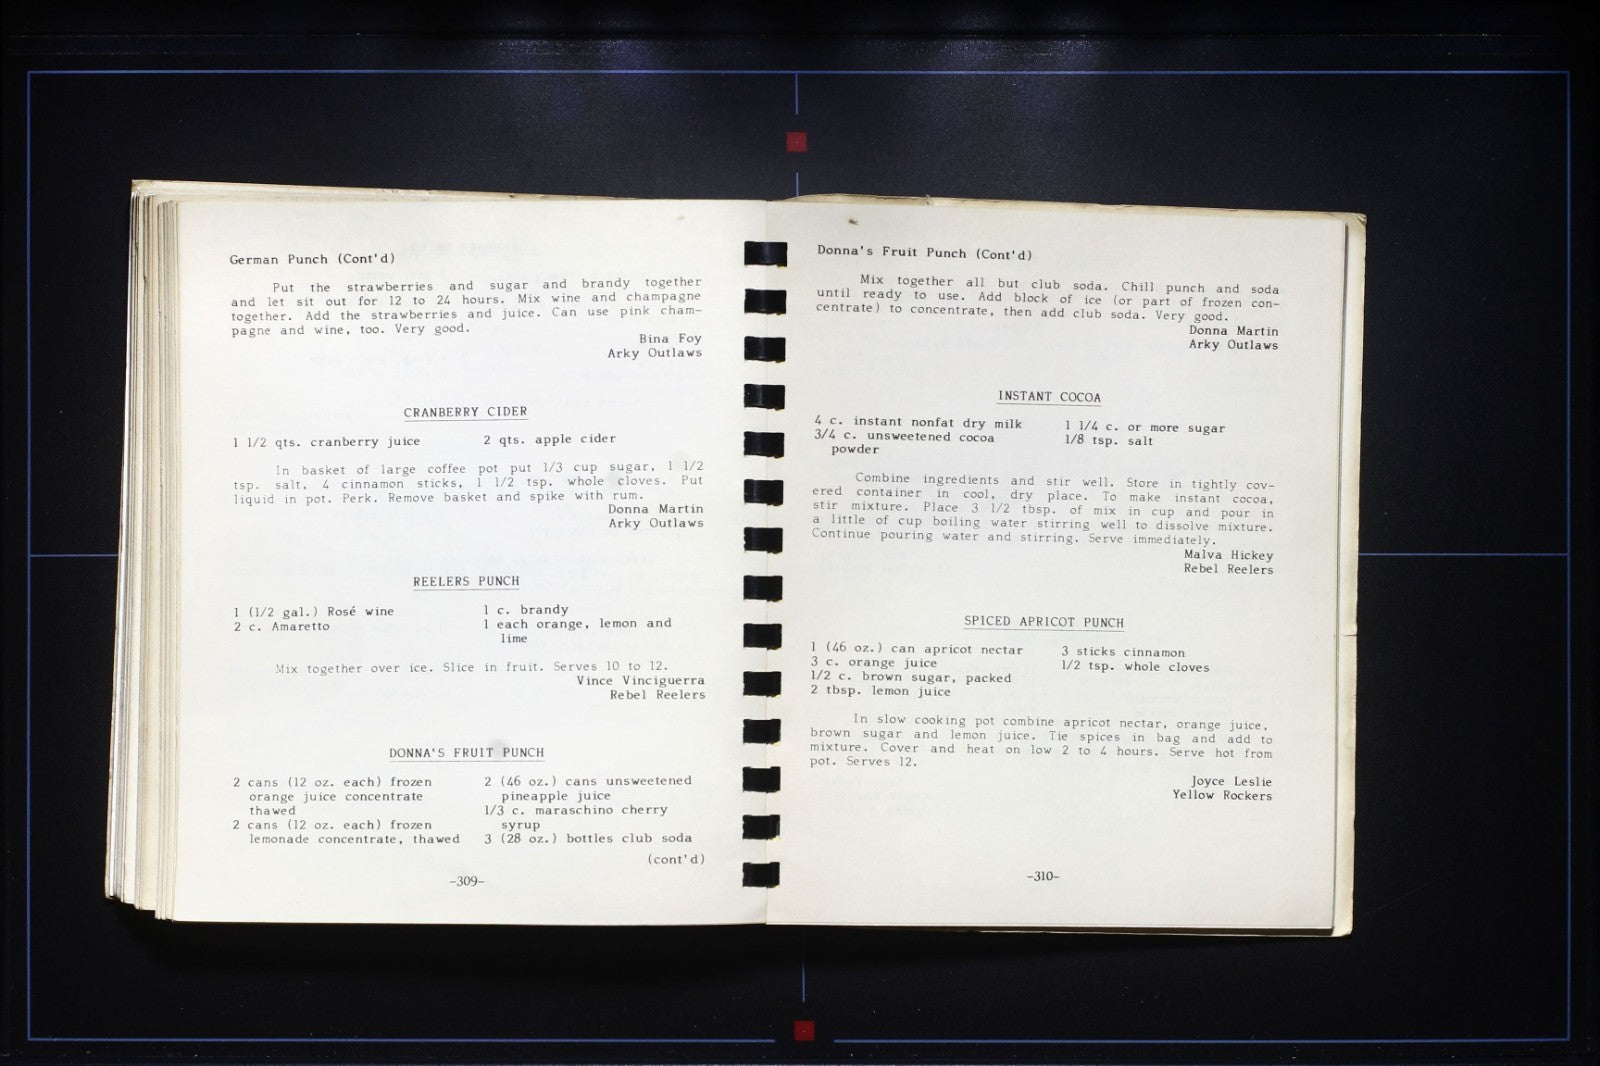 German Punch (Cont'd)
Put the strawberries and sugar and brandy together
and let sit out for 12 to 24 hours. Mix wine and champagne
together. Add the strawberries and juice. Can use pink cham-
pagne and wine, too. Very good.
Bina Foy
Arky Outlaws
CRANBERRY CIDER
1 1/2 qts. cranberry juice
2 qts. apple cider
In basket of large coffee pot put 1/3 cup sugar, 1 1/2
tsp. salt, 4 cinnamon sticks, 1 1/2 tsp. whole cloves. Put
liquid in pot. Perk. Remove basket and spike with rum.
Donna Martin
Arky Outlaws
REELERS PUNCH
1 (1/2 gal.) Rosé wine
2 c. Amaretto
1 c. brandy
1 each orange, lemon and
lime
Mix together over ice. Slice in fruit. Serves 10 to 12.
Vince Vinciguerra
Rebel Reelers
DONNA'S FRUIT PUNCH
2 cans (12 oz. each) frozen
orange juice concentrate
thawed
2 cans (12 oz. each) frozen
lemonade concentrate, thawed
2 (46 oz.) cans unsweetened
pineapple juice
1/3 c. maraschino cherry
syrup
3 (28 oz.) bottles club soda
(cont'd)
-309-
Donna's Fruit Punch (Cont'd)
Mix together all but club soda. Chill punch and soda
until ready to use. Add block of ice (or part of frozen con-
centrate) to concentrate, then add club soda. Very good.
Donna Martin
Arky Outlaws
INSTANT COCOA
4 c. instant nonfat dry milk
3/4 c. unsweetened cocoa
powder
1 1/4 c. or more sugar
1/8 tsp. salt
Combine ingredients and stir well. Store in tightly cov-
ered container in cool, dry place. To make instant cocoa,
stir mixture. Place 3 1/2 tbsp. of mix in cup and pour in
a little of cup boiling water stirring well to dissolve mixture.
Continue pouring water and stirring. Serve immediately.
Malva Hickey
Rebel Reelers
SPICED APRICOT PUNCH
1 (46 oz.) can apricot nectar
3 c. orange juice
1/2 c. brown sugar, packed
2 tbsp. lemon juice
3 sticks cinnamon
1/2 tsp. whole cloves
In slow cooking pot combine apricot nectar, orange juice,
brown sugar and lemon juice. Tie spices in bag and add to
mixture. Cover and heat on low 2 to 4 hours. Serve hot from
pot. Serves 12.
Joyce Leslie
Yellow Rockers
-310-